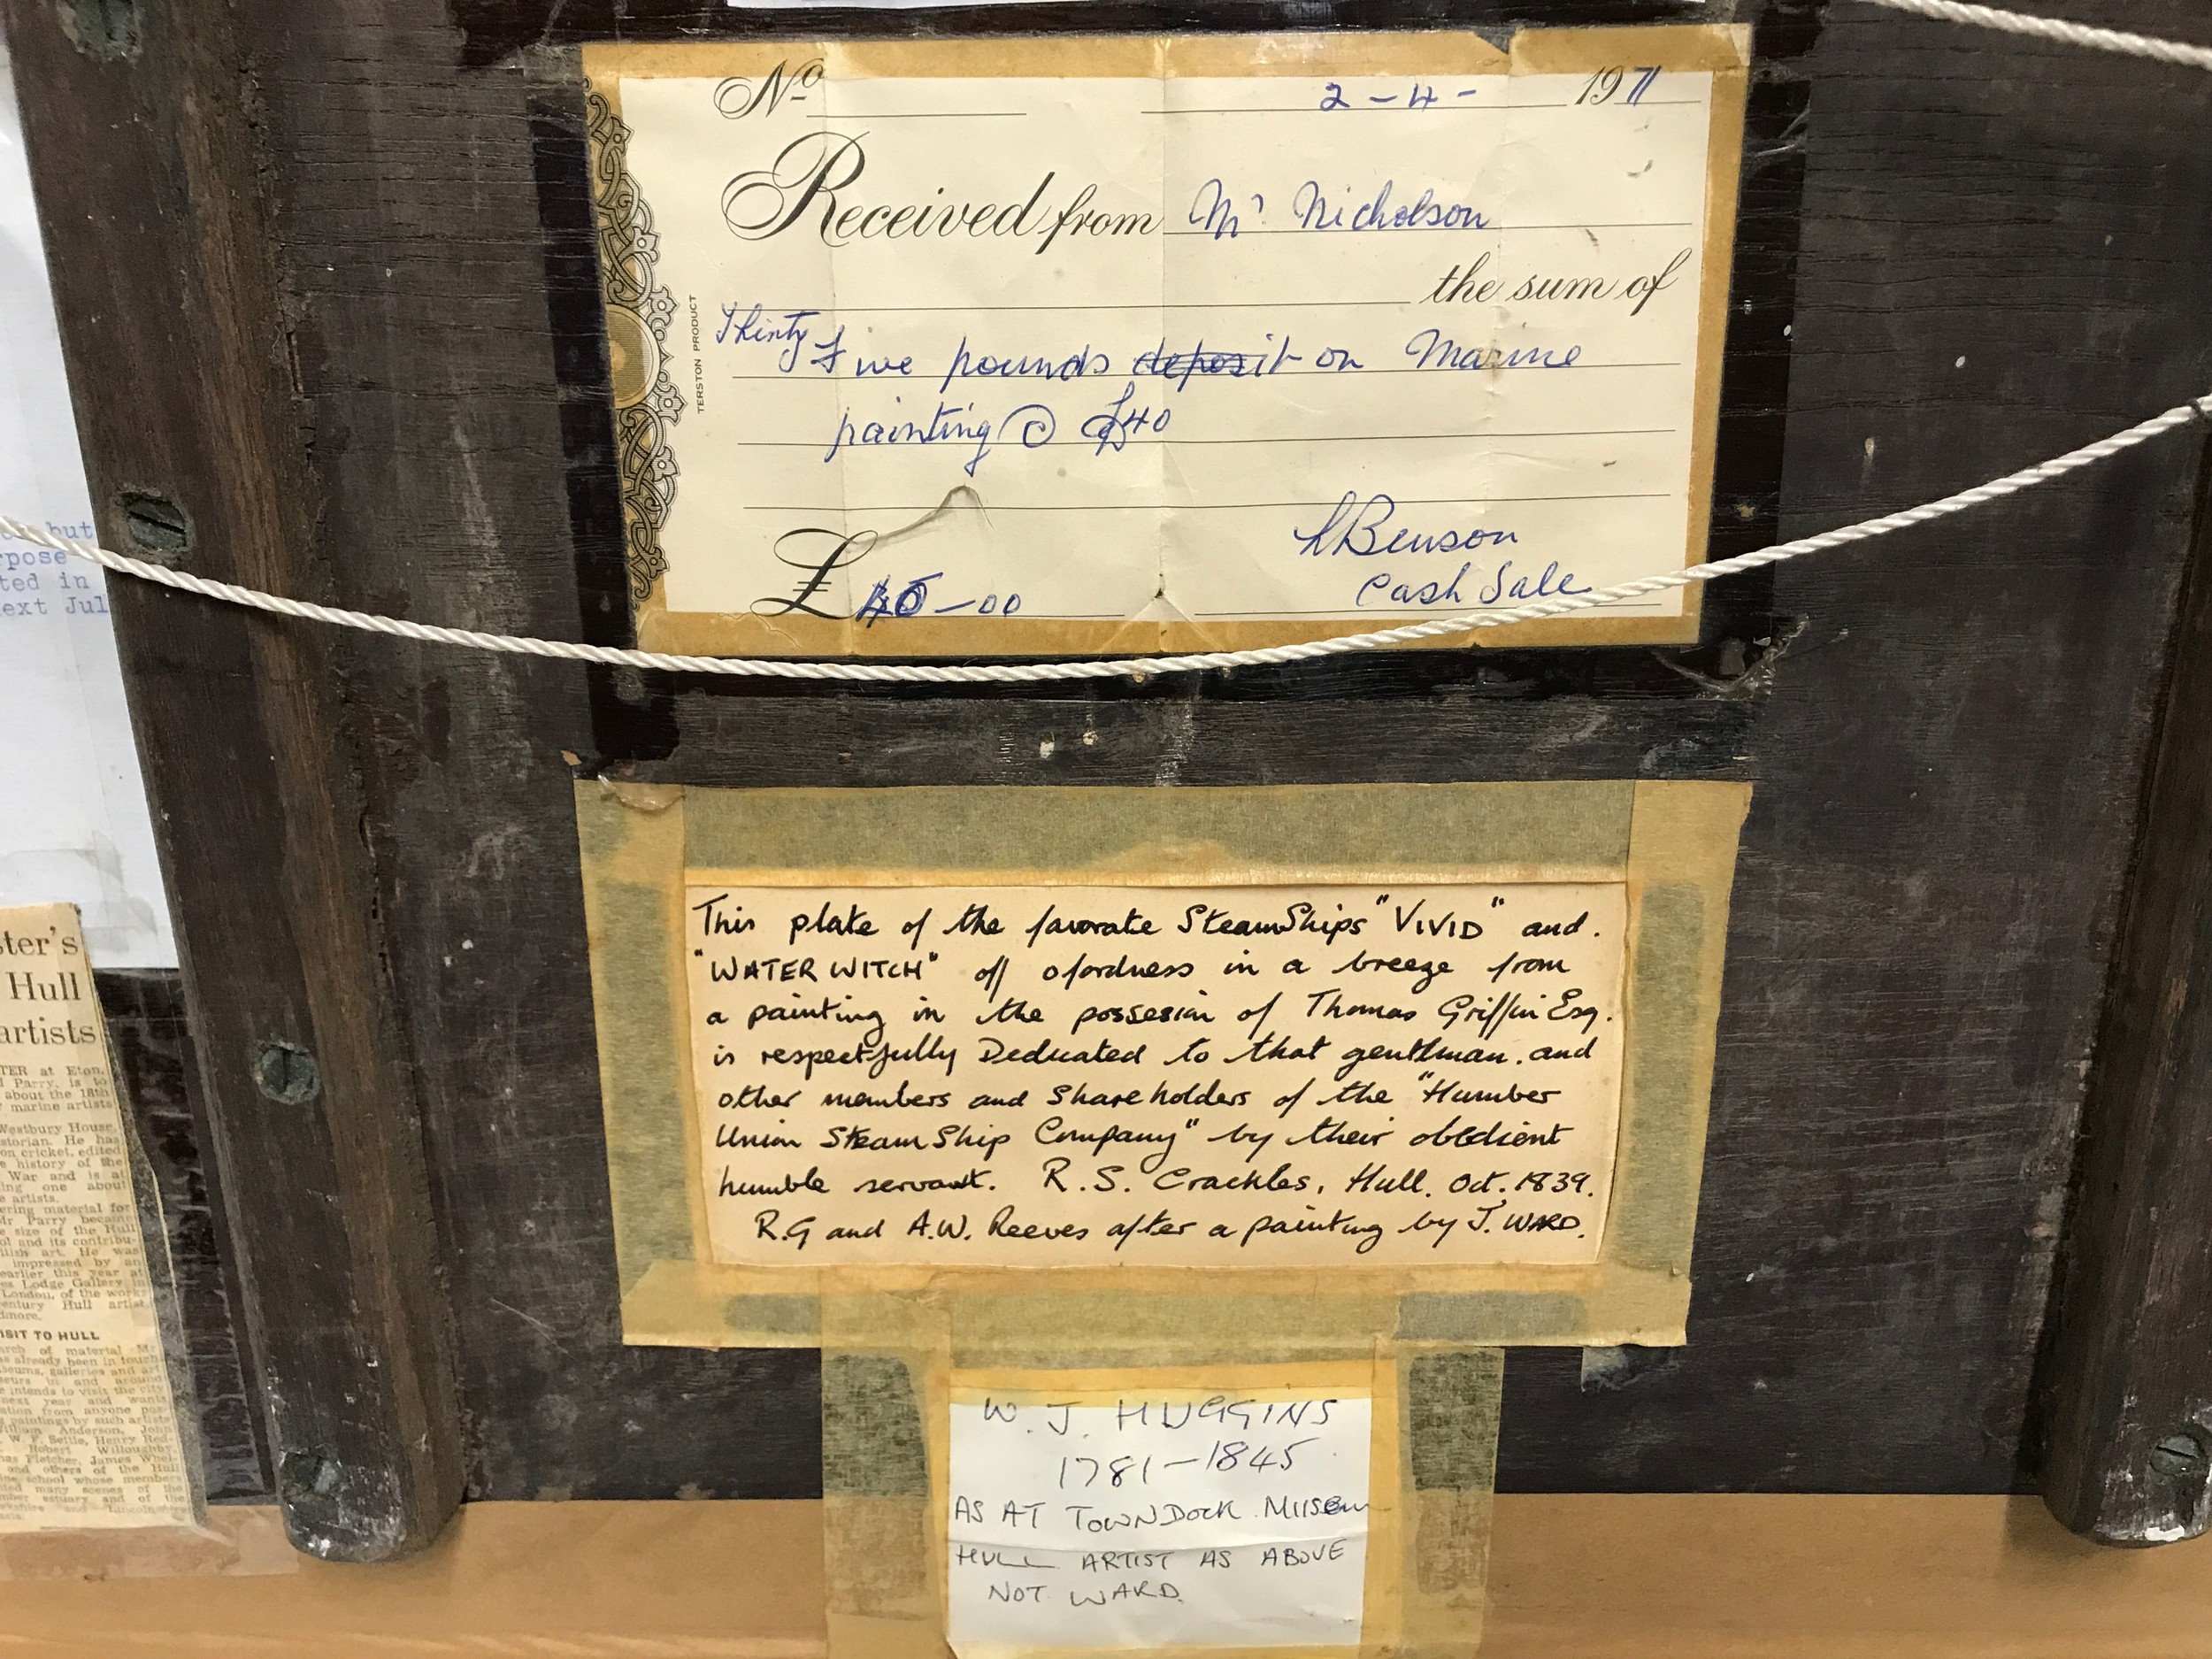 No 2-4- 1971
Received from Mr Nicholson
the sum of
Thirty
Five pounds deposit on Marine
painting @ £40
£ 40-00
Benson
Cash Sale
TERSTON PRODUCT
This plate of the favorate SteamShips "VIVID" and.
"WATER WITCH" off ofordness in a breeze from
a painting in the possesion of Thomas Griffin Esq.
is respectfully Dedicated to that gentlman. and
other members and Shareholders of the "Humber
Union SteamShip Company" by their obedient
humble servant. R.S. Crackles, Hull. Oct. 1839.
R.G and A.W. Reeves after a painting by J. WARD.
W. J. HUGGINS
1781-1845
AS AT TOWN DOCK MUSEUM
HULL ARTIST AS ABOVE
NOT WARD.
but
rpose
ted in
ext Jul
ter's
Hull
artists
TER at Eton,
Parry, is to
about the 18th
marine artists
Westbury House,
storian. He has
on cricket, edited
history of the
War and is at
ing one about
artists.
ering material for
Mr Parry became
size of the Hull
ol and its contribu-
lish art. He was
impressed by an
earlier this year at
Lodge Gallery in
London, of the works
entury Hull artist,
dmore.
ISIT TO HULL
arch of material Mr
as already been in touch
seums, galleries and art
seurs in and around
intends to visit the city
next year and wants
ation from anyone pos-
paintings by such artists
William Anderson, John
W. F. Settle, Henry Red-
Robert Willoughby,
Thomas Fletcher, James Whel-
and others of the Hull
ine school whose members
ted many scenes of the
mber estuary and of the